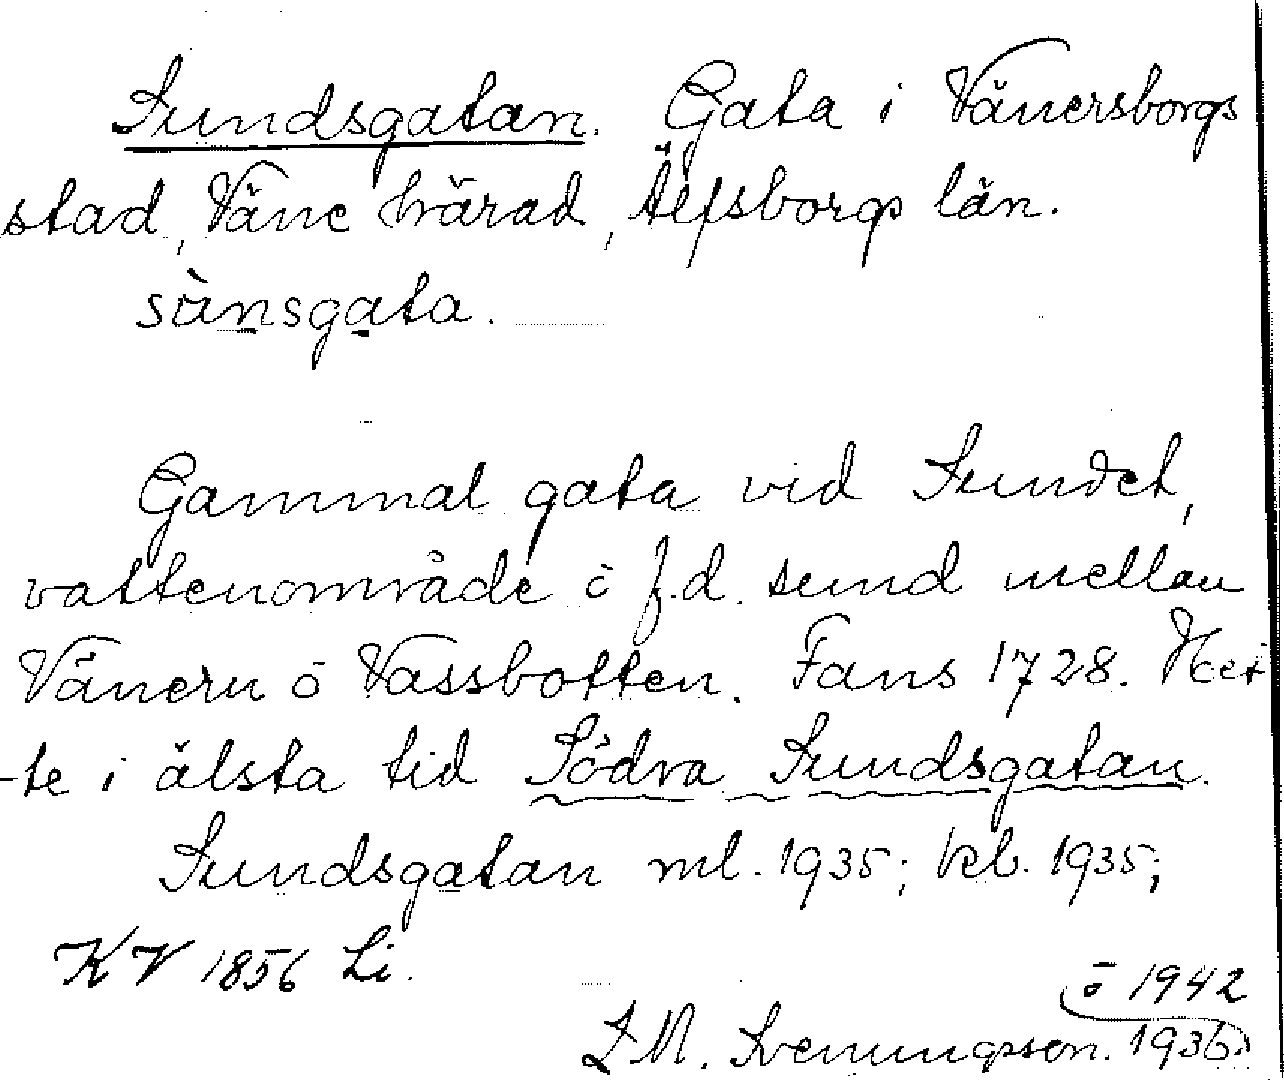 Sundsgatan. Gata i Vänersborgs
stad, Väne härad, Älfsborgs län.
sùnsgata.
Gammal gata vid Sundet,
vattenområde ō f.d. sund mellan
Vänern ō Vassbotten. Fans 1728. Het
-te i älsta tid Södra Sundsgatan.
Sundsgatan ml. 1935; kb. 1935;
KV 1856 Li.
ō 1942
I. M. Svenungsson. 1936.